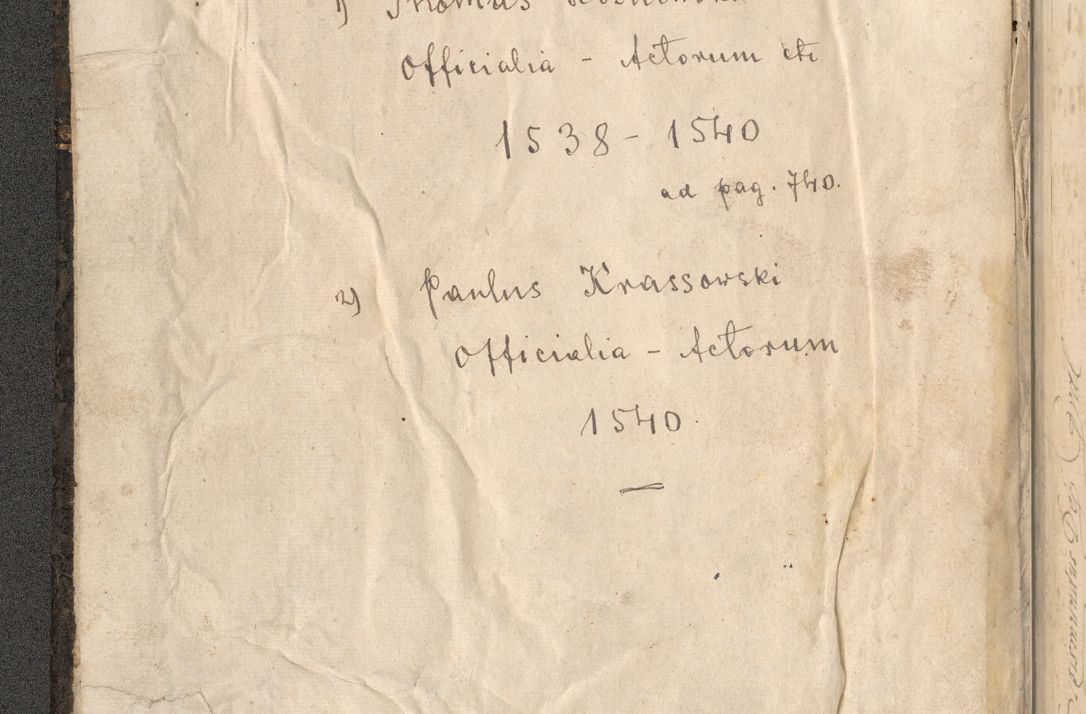 1) Thomas
Officialia - Actorum etc
1538 - 1540
ad pag. 740.
2) Paulus Krassowski
Officialia - Actorum
1540.